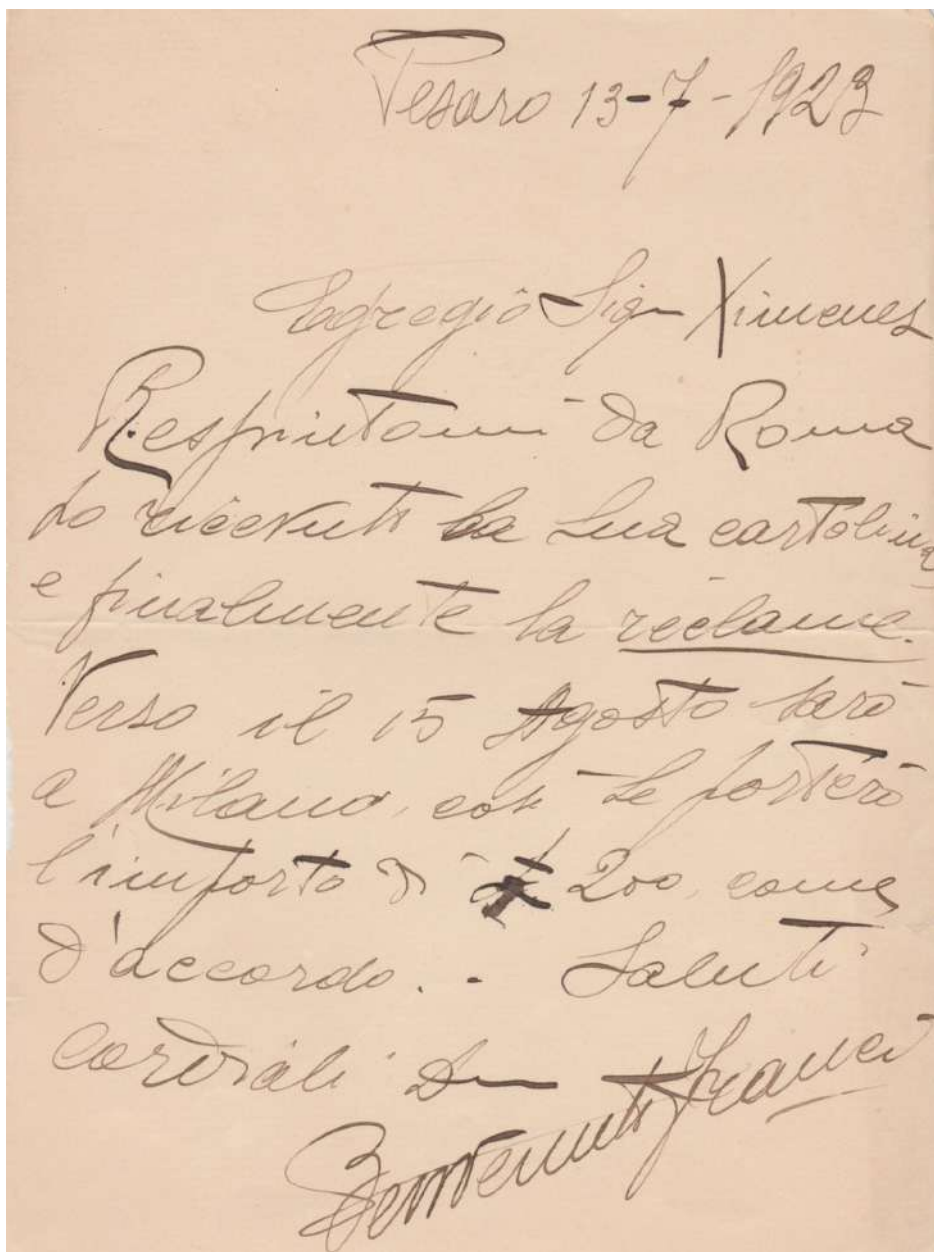 Pesaro 13-7-1923
Egregio Sign Ximenes
Respintomi da Roma
ho ricevuto la Sua cartolina
e finalmente la réclame.
Verso il 15 Agosto sarò
a Milano, così Le porterò
l'importo di £ 200, come
d'accordo. - Saluti
cordiali
Benvenuto Franci